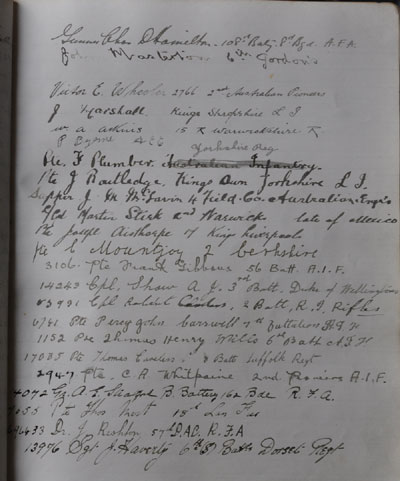 Gunner Chas D Hamilton. 108th Baty. 8th Bgd. A.F.A.
John Masterton 6th Gordons
Victor E. Wheeler 2766 2nd Australian Pioneers
J Marshall. Kings Shropshire L I
W. A. Atkins 15 R Warwickshire R.
P Byrne Yorkshire Reg
Pte. F Plumber. Australian Infantry
Pte J Routledge, Kings Own Yorkshire L I.
Sapper J. M. McGavin 4 Field. Co. Australian Eng's
L/Cpl Martin 2nd Warwick late of Mexico
Pte Joseph Aisthorpe 17 Kings Liverpools
Pte C Mountjoy 2 berkshire
3106. Pte Frank Gibbens 56 Batt. A.I.F.
14243 Cpl, Shaw A. J. 3rd Batt, Duke of Wellingtons
Cpl Robert 2 Batt, R. I. Rifles
Pte Percy John Carswell Battalion A I F
1152 Pte Thomas Henry Willis 6th Batt A I F
17035 Pte Thomas 8 Batt Suffolk Regt
2947 Pte, C. A. Whitpaine 2nd Pioneers A.I.F.
4072 Gr. A. E. B. Battery 162 Bde R. F. A.
Pte Thos West 15th Lan Fus
Dr. J. Rishton 57th D.A.C. R. F. A
13976 Sgt J. Haverty 6th (S) Battn Dorset Regt